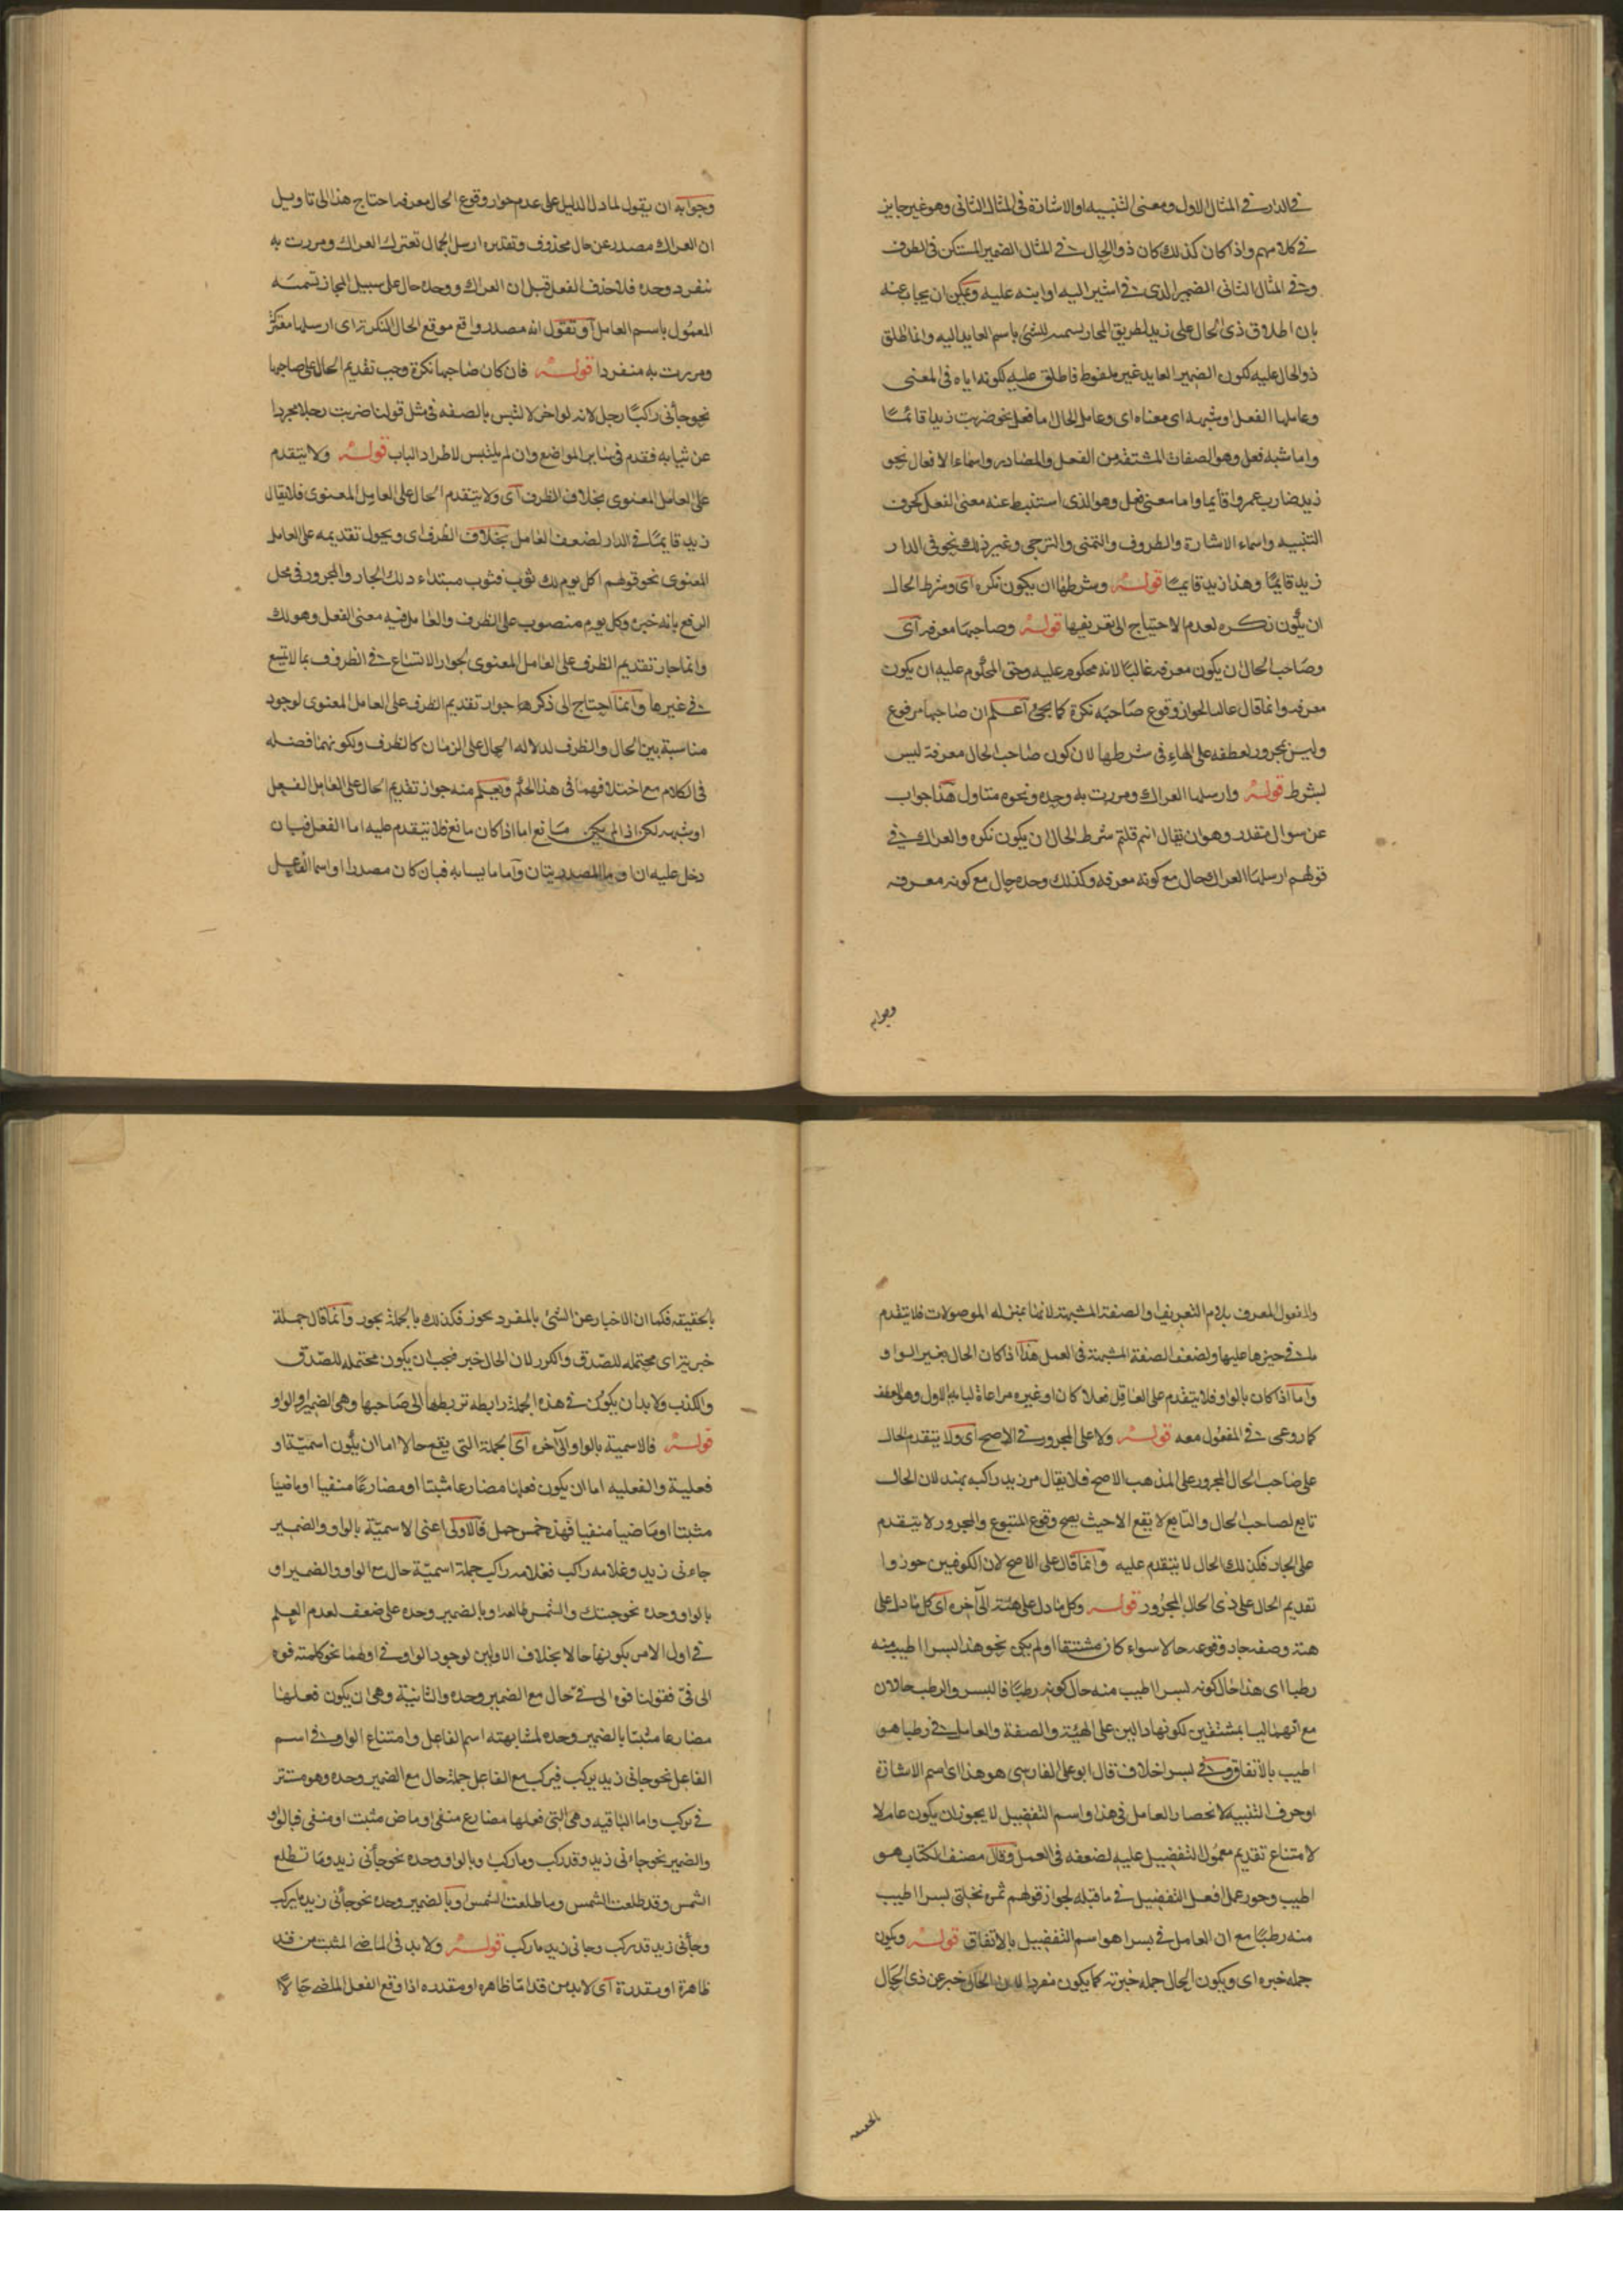 في الدار في المثال الاول ومعنى التنبيه او الاشارة في المثال الثاني وهو غير جايز
في كلامهم واذا كان كذلك كان ذو الحال في المثال الضمير المستكن في الظرف
وفي المثال الثاني الضمير الذي في اشير اليه او انبه عليه ويمكن ان يجاب عنه
بان اطلاق ذي الحال على زيد بطريق المجاز تسميه للشئ باسم العايد اليه وانما اطلق
ذو الحال عليه لكون الضمير العايد غير ملفوظ فاطلق عليه لكونه اياه في المعنى
وعاملها الفعل او شبهه اى معناه اى وعامل الحال اما فعل نحو ضربت زيدا قائمًا
واما شبه فعل وهو الصفات المشتقة من الفعل والمصادر واسماء الافعال نحو
زيد ضارب عمروا قايما واما معنى فعل وهو الذى استنبط عنه معنى الفعل كحرف
التنبيه واسماء الاشارة والظروف والتمنى والترجى وغير ذلك نحو في الدار
زيد قايمًا وهذا زيد قايمًا قوله وشرطها ان يكون نكره اى وشرط الحال
ان يكون نكره لعدم الاحتياج الى تعريفها قوله وصاحبها معرفه اى
وصاحب الحال ان يكون معرفه غالبًا لانه محكوم عليه وحق المحكوم عليه ان يكون
معرفه وانما قال غالبا لجواز وقوع صاحبه نكرة كما يجئ اعلم ان صاحبها مرفوع
وليس بمجرور لعطفه على الهاء في شرطها لان كون صاحب الحال معرفة ليس
بشرط قوله وارسلها العراك ومررت به وحده ونحوه متاول هذا جواب
عن سوال مقدر وهو ان يقال انتم قلتم شرط الحال ان يكون نكره والعراك في
قولهم ارسلها العراك حال مع كونه معرفه وكذلك وحده حال مع كونه معرفه
وجوابه
وجوابه ان يقول لما دل الدليل على عدم جواز وقوع الحال معرفه احتاج هذا الى تاويل
ان العراك مصدر عن حال محذوف وتقديره ارسل الجمال تعترك العراك ومررت به
ينفرد وحده فلما حذف الفعل قبل ان العراك ووحده حال على سبيل المجاز تسمية
المعمول باسم العامل او تقول انه مصدر واقع موقع الحال النكرة اى ارسلها معتركة
ومررت به منفردا قوله فان كان صاحبها نكرة وجب تقديم الحال على صاحبها
نحو جاءنى راكبًا رجل لانه لو اخر لالتبس بالصفه في مثل قولنا ضربت رجلا مجردا
عن ثيابه فقدم في سائر المواضع وان لم يلتبس لاطراد الباب قوله ولا يتقدم
على العامل المعنوى بخلاف الظرف اى ولا يتقدم الحال على العامل المعنوى فلا يقال
زيد قايمًا في الدار لضعف العامل بخلاف الظرف اى ويجوز تقديمه على العامل
المعنوى نحو قولهم اكل يوم لك ثوب فثوب مبتداء ولك الجار والمجرور في محل
الرفع بانه خبره وكل يوم منصوب على الظرف والعامل فيه معنى الفعل وهو لك
وانما جاز تقديم الظرف على العامل المعنوى لجواز الاتساع في الظروف بما لا يتسع
في غيرها وانما احتاج الى ذكرها جواز تقديم الظرف على العامل المعنوى لوجود
مناسبة بين الحال والظرف لدلاله الحال على الزمان كالظرف ولكونهما فضله
في الكلام مع اختلافهما في هذا الحكم ويعلم منه جواز تقديم الحال على العامل الفعل
او شبهه لكن اذا لم يكن مانع اما اذا كان مانع فلا يتقدم عليه اما الفعل فبان
دخل عليه ان او ما المصدريتان واما ما يشابه فبان كان مصدرا او اسم الفاعل
والمفعول المعرف بلام التعريف والصفة المشبهة لانها بمنزله الموصولات فلا يتقدم
ما في حيزها عليها ولضعف الصفة المشبهة في العمل هذا اذا كان الحال بغير الواو
واما اذا كان بالواو فلا يتقدم على العامل فعلا كان او غيره مراعاة لبابها الاول وهو العطف
كما روعى في المفعول معه قوله ولا على المجرور في الاصح اى ولا يتقدم الحال
على صاحب الحال المجرور على المذهب الاصح فلا يقال مر زيد راكبه بهند لان الحال
تابع لصاحب الحال والتابع لا يقع الا حيث يصح وقوع المتبوع والمجرور لا يتقدم
على الجار فكذلك الحال لا يتقدم عليه وانما قال على الاصح لان الكوفيين جوزوا
تقديم الحال على ذى الحال المجرور قوله وكل ما دل على هيئة الى آخره اى كل ما دل على
هيئة وصفه جاز وقوعه حالا سواء كان مشتقا او لم يكن نحو هذا بسرا اطيب منه
رطبا اى هذا حال كونه بسرا اطيب منه حال كونه رطبًا فالبسر والرطب حالان
مع انهما ليسا بمشتقين لكونهما دالين على الهيئة والصفة والعامل في رطبا هو
اطيب بالاتفاق وفي بسرا خلاف قال ابو على الفارسى هو هذا اى اسم الاشارة
او حرف التنبيه لانحصار العامل في هذا واسم التفضيل لا يجوز ان يكون عاملا
لامتناع تقديم معمول التفضيل عليه لضعفه في العمل وقال مصنف الكتاب هو
اطيب وجوز عمل افعل التفضيل في ما قبله لجواز قولهم ثمره نخلتى بسرا اطيب
منه رطبًا مع ان العامل في بسرا هو اسم التفضيل بالاتفاق قوله ويكون
جمله خبره اى ويكون الحال جمله خبريه كما يكون مفردا لان الحال خبر عن ذى الحال
بالحقيقه
بالحقيقه فكما ان الاخبار عن الشئ بالمفرد يجوز فكذلك بالجملة يجوز وانما قال جملة
خبرية اى محتمله للصدق والكذب لان الحال خبر فيجب ان يكون محتمله للصدق
والكذب ولا بد ان يكون في هذه الجملة رابطه تربطها الى صاحبها وهى الضمير او الواو
قوله فالاسمية بالواو الى آخره اى الجملة التى يقع حالا اما ان يكون اسمية او
فعلية والفعليه اما ان يكون فعلها مضارعا مثبتا او مضارعًا منفيا او ماضيا
مثبتا او ماضيا منفيا فهذه خمس جمل فالاولى اعنى الاسمية بالواو والضمير
جاءنى زيد وغلامه راكب فغلامه راكب جملة اسمية حال مع الواو والضمير او
بالواو وحده نحو جيتك والشمس طالعه او بالضمير وحده على ضعف لعدم العلم
في اول الامر بكونها حالا بخلاف الاولين لوجود الواو في اولهما نحو كلمته فوه
الى فى فقولنا فوه الى في حال مع الضمير وحده والثانية وهى ان يكون فعلها
مضارعا مثبتا بالضمير وحده لمشابهته اسم الفاعل وامتناع الواو في اسم
الفاعل نحو جاءنى زيد يركب فيركب مع الفاعل جملة حال مع الضمير وحده وهو مستتر
في يركب واما الباقيه وهى التى فعلها مضارع منفى او ماض مثبت او منفى فبالواو
والضمير نحو جاءنى زيد وقد ركب وما ركب وبالواو وحده نحو جاءنى زيد وما تطلع
الشمس وقد طلعت الشمس وما طلعت الشمس او بالضمير وحده نحو جاءنى زيد ما يركب
وجاءنى زيد قد ركب وجاءنى زيد ما ركب قوله ولا بد في الماضى المثبت من قد
ظاهرة او مقدرة اى لا بد من قد اما ظاهره او مقدره اذا وقع الفعل الماضى حالاً